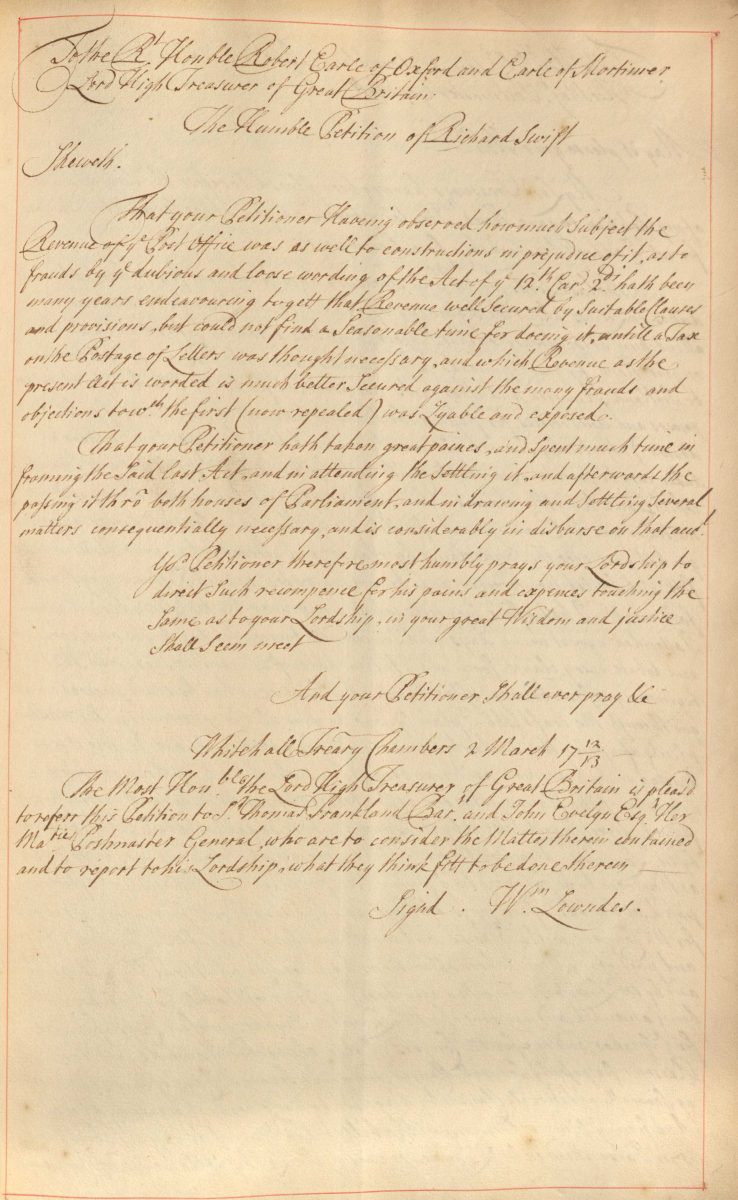 To the Rt. Honble Robert Earle of Oxford and Earle of Mortimer
Lord High Treasurer of Great Britain.
The Humble Petition of Richard Swift
Sheweth.
That your Petitioner Having observed how much Subject the
Revenue of ye. Post Office was as well to constructions in prejudice of it, as to
frauds by ye dubious and loose wording of the Act of ye 12.th Car. 2.di hath been
many years endeavouring to gett that Revenue well Secured by Suitable Clauses
and provisions, but could not find a Seasonable time for doeing it, untill a Tax
on the Postage of Letters was thought necessary, and which Revenue as the
present Act is worded is much better Secured against the many frauds and
objections to wch. the first (now repealed) was Lyable and exposed.
That your Petitioner hath taken great paines, and Spent much time in
framing the Said last Act, and in attending the Settling it, and afterwards the
passing it thro' both houses of Parliament, and in drawing and Settling Several
matters consequentially necessary, and is considerably in disburse on that accot.
Yor. Petitioner therefre most humbly prays your Lordship to
direct Such recompence for his pains and expences touching the
Same as to your Lordship, in your great Wisdom and justice
Shall Seem meet
And your Petitioner Shall ever pray &c
Whitehall Trea'ry Chambers 2 March 17 12/13
The Most Hon.ble the Lord High Treasurer of Great Britain is pleas'd
to referr this Petition to Sr. Thomas Frankland Bart. and John Evelyn Esqr. Her
Ma.ties Postmaster General, who are to consider the Matter therein contained
and to report to his Lordship, what they think fitt to be done therein
Signd . Wm. Lowndes.